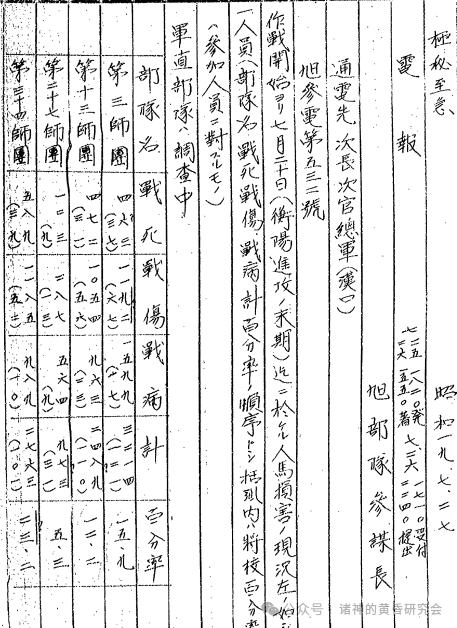 極秘至急、 昭和一九、七、二七
電報 七二五 一八二〇発 七、二六 一七一〇受付
七二六 一五五〇着 二二四〇提出
旭部隊參謀長
通電先 次長次官總軍(漢口)
旭參電第五三二號
作戰開始ヨリ七月二十日(衡陽進攻ノ末期)迄ニ於ケル人馬損害ノ現況左ノ如
一人員(部隊名戰死戰傷戰病計百分率ノ順序トシ括弧内ハ將校百分率
(參加人員ニ對スルモノ)
軍直部隊ハ調査中
部隊名 戰死 戰傷 戰病 計 百分率
第三師團 四六三 一一九二 一五九九 三二一四 一五、九
(六七) (一七)
第十三師團 四七二 一〇五四 九六三 二四八九 一二、二
(三一) (五六) (二三) (一一〇)
第二十七師團 一二三 二八七 五六四 九七三 五、三
(九) (一三) (九) (三一)
第三十四師團 五八九 一一八五 九八九 二七六三 二三、二
(三九) (五二) (一〇) (一〇一)
公众号 · 诸神的黄昏研究会